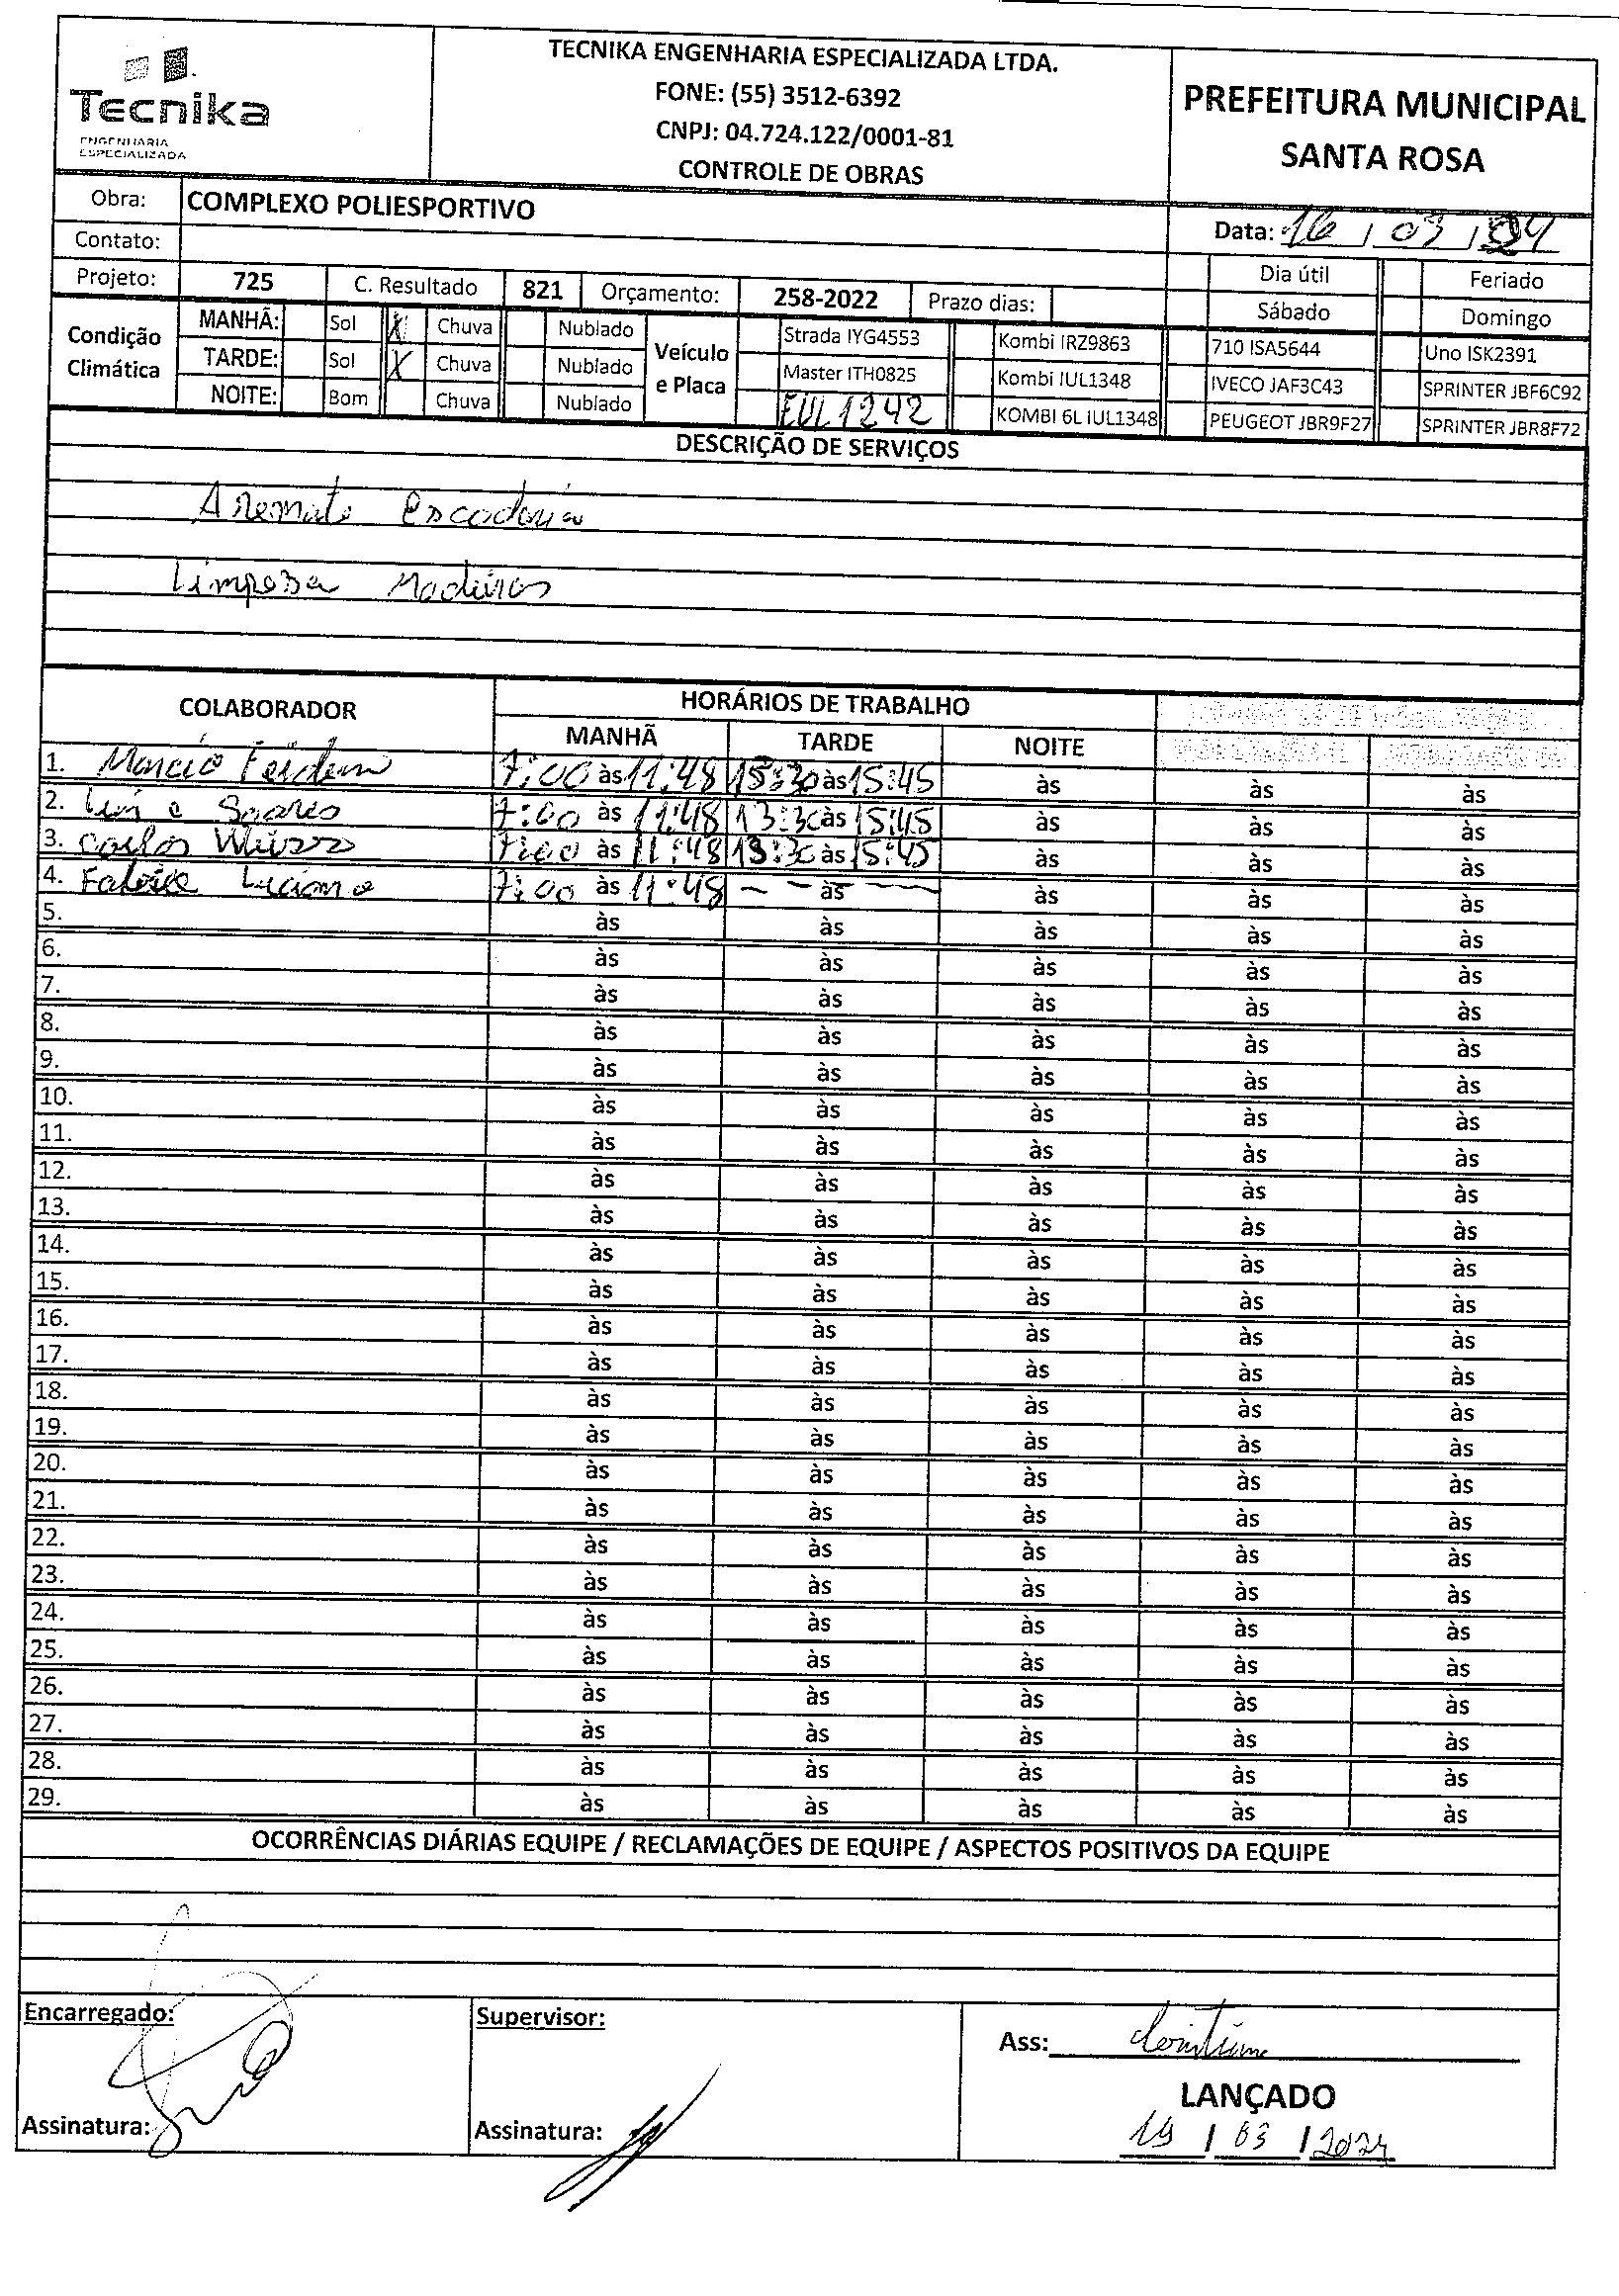 Tecnika
ENGENHARIA
ESPECIALIZADA
TECNIKA ENGENHARIA ESPECIALIZADA LTDA.
FONE: (55) 3512-6392
CNPJ: 04.724.122/0001-81
CONTROLE DE OBRAS
PREFEITURA MUNICIPAL
SANTA ROSA
Obra: COMPLEXO POLIESPORTIVO
Data: 16 / 03 / 24
Contato:
Projeto: 725 C. Resultado 821 Orçamento: 258-2022 Prazo dias:
Dia útil Feriado
Sábado Domingo
Condição Climática
MANHÃ: Sol X Chuva Nublado
TARDE: Sol X Chuva Nublado
NOITE: Bom Chuva Nublado
Veículo e Placa
Strada IYG4553 Kombi IRZ9863 710 ISA5644 Uno ISK2391
Master ITH0825 Kombi IUL1348 IVECO JAF3C43 SPRINTER JBF6C92
IUL1242 KOMBI 6L IUL1348 PEUGEOT JBR9F27 SPRINTER JBR8F72
DESCRIÇÃO DE SERVIÇOS
Aremate Escadaria
Limpesa Madeiras
COLABORADOR HORÁRIOS DE TRABALHO
MANHÃ TARDE NOITE
1. Marcio 7:00 às 11:48 13:30 às 15:45 às às às
2. Soares 7:00 às 11:48 13:30 às 15:45 às às às
3. Carlos 7:00 às 11:48 13:30 às 15:45 às às às
4. Luciano 7:00 às 11:48 - - às - - às às às
5. às às às às às
6. às às às às às
7. às às às às às
8. às às às às às
9. às às às às às
10. às às às às às
11. às às às às às
12. às às às às às
13. às às às às às
14. às às às às às
15. às às às às às
16. às às às às às
17. às às às às às
18. às às às às às
19. às às às às às
20. às às às às às
21. às às às às às
22. às às às às às
23. às às às às às
24. às às às às às
25. às às às às às
26. às às às às às
27. às às às às às
28. às às às às às
29. às às às às às
OCORRÊNCIAS DIÁRIAS EQUIPE / RECLAMAÇÕES DE EQUIPE / ASPECTOS POSITIVOS DA EQUIPE
Encarregado:
Assinatura:
Supervisor:
Assinatura:
Ass:
LANÇADO
19 / 03 / 2024